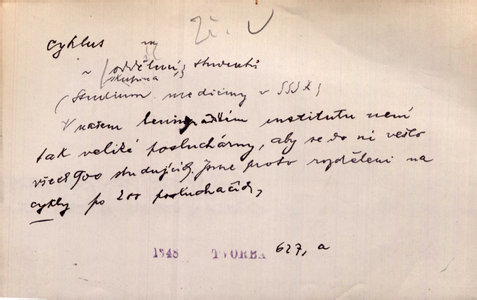 cyklus
~ oddělení, studentů
skupina
(Studium medicíny v SSSR)
V našem leningradském institutu není
tak veliké posluchárny, aby se do ní vešlo
všech 900 studujících. Jsme proto rozděleni na
cykly po 200 posluchačích,
1948 TVORBA 627, a